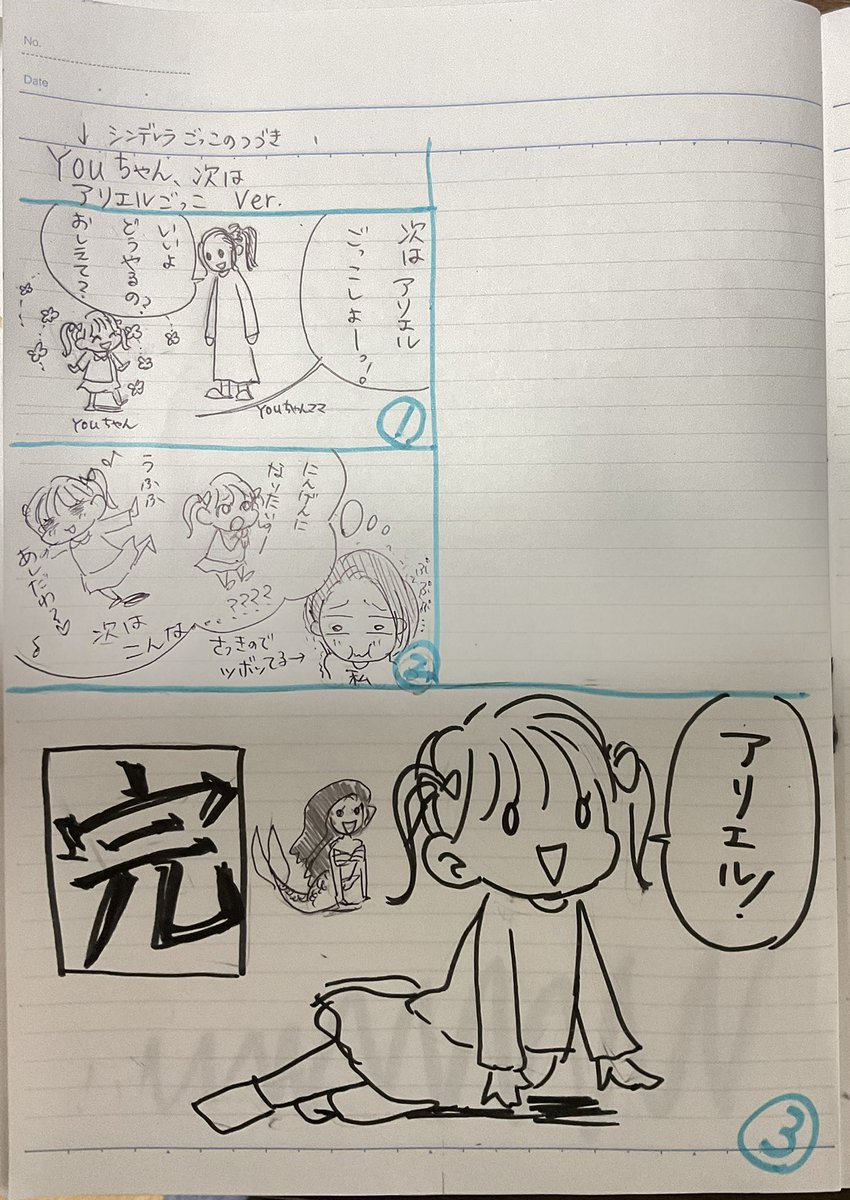 No.
Date
↓ シンデレラごっこのつづき
Youちゃん、次は
アリエルごっこ Ver.
次は アリエル
ごっこしよーっ!
いいよ
どうやるの?
おしえて?
Youちゃんママ
Youちゃん
①
にんげんに
なりたいのー
????
うふふ
♪
あしだわ〜♡
次は
こんな…
さっきので
ツボってる→
私
②
アリエル!
完
③